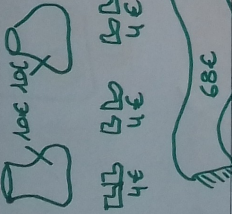 10€ 10€
4€ 4€ 4€
68€